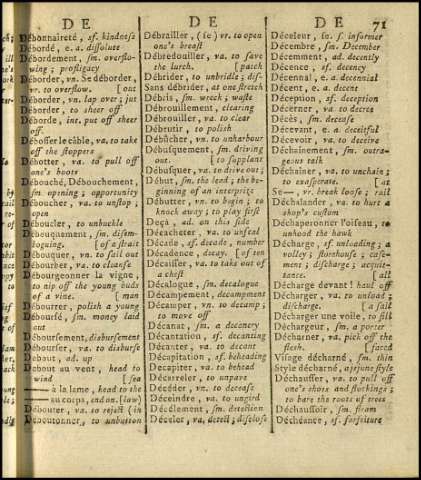 D E
D E
D E 71
Débonnaireté, sf. kindness
Débordé, e. a. dissolute
Débordement, sm. overflo-
wing; profligacy
Déborder, vn. Se déborder,
vr. to overflow. [out
Déborder, vn. lap over; jut
Déborder, to sheer off
Déborde, int. put off sheer
off.
Débosser le câble, va. to take
off the stoppers
Débotter, va. to pull off
one's boots
Débouché, Débouchement,
sm. opening; opportunity
Déboucher, va. to unstop;
open
Déboucler, to unbuckle
Débouquement, sm. disem-
boguing. [of a strait
Débouquer, vn. to sail out
Débourber, va. to cleanse
Débourgeonner la vigne,
to nip off the young buds
of a vine. [man
Débourrer, polish a young
Déboursé, sm. money laid
out
Déboursement, disbursement
Débourser, va. to disburse
Debout, ad. up
Debout au vent, head to
wind [sea
—— à la lame, head to the
—— au corps, end on. [law)
Débouter, va. to reject (in
Déboutonner, to unbutton
Débrailler, (se) vr. to open
one's breast
Débredouiller, va. to save
the lurch. [pace
Débrider, to unbridle; dis-
Sans débrider, at one stretch
Débris, sm. wreck; waste
Débrouillement, clearing
Débrouiller, va. to clear
Débrutir, to polish
Débûcher, vn. to unharbour
Débusquement, sm. driving
out. [to supplant
Débusquer, va. to drive out;
Début, sm. the lead; the be-
ginning of an interprize
Débutter, vn. to begin; to
knock away; to play first
Deçà, ad. on this side
Décacheter, va. to unseal
Décade, sf. decade, number
Décadence, decay. [of ten
Décaisser, va. to take out of
a chest
Décalogue, sm. decalogue
Décampement, decampment
Décamper, vn. to decamp;
to move off
Décanat, sm. a deconery
Décantation, sf. decanting
Décanter, va. to decant
Décapitation, sf. beheading
Décapiter, va. to behead
Décarreler, to unpave
Décéder, vn. to decease
Déceindre, va. to ungird
Décèlement, sm. detection
Déceler, va. detect; disclose
Déceleur, sm. f. informer
Décembre, sm. December
Décemment, ad. decently
Décence, sf. decency
Décennal, e. a. decennial
Décent, e. a. decent
Déception, sf. deception
Décerner, va. to decree
Décès, sm. decease
Décevant, e. a. deceitful
Décevoir, va. to deceive
Déchaînement, sm. outra-
geous talk
Déchaîner, va. to unchain;
to exasperate. [at
Se—, vr. break loose; rail
Déchalander, va. to hurt a
shop's custom
Déchaperonner l'oiseau, to
unhood the hawk
Décharge, sf. unloading; a
volley; storehouse; case-
ment; discharge; acquit-
tance. [all
Décharge devant! haul off
Décharger, va. to unload;
discharge. [a sail
Décharger une voile, to fill
Déchargeur, sm. a porter
Décharner, va. pick off the
flesh. [faced
Visage décharné, sm. thin
Style décharné, a jejune style
Déchausser, va. to pull off
one's shoes and stockings;
to bare the roots of trees
Déchaussoir, sm. fleam
Déchéance, sf. forfeiture